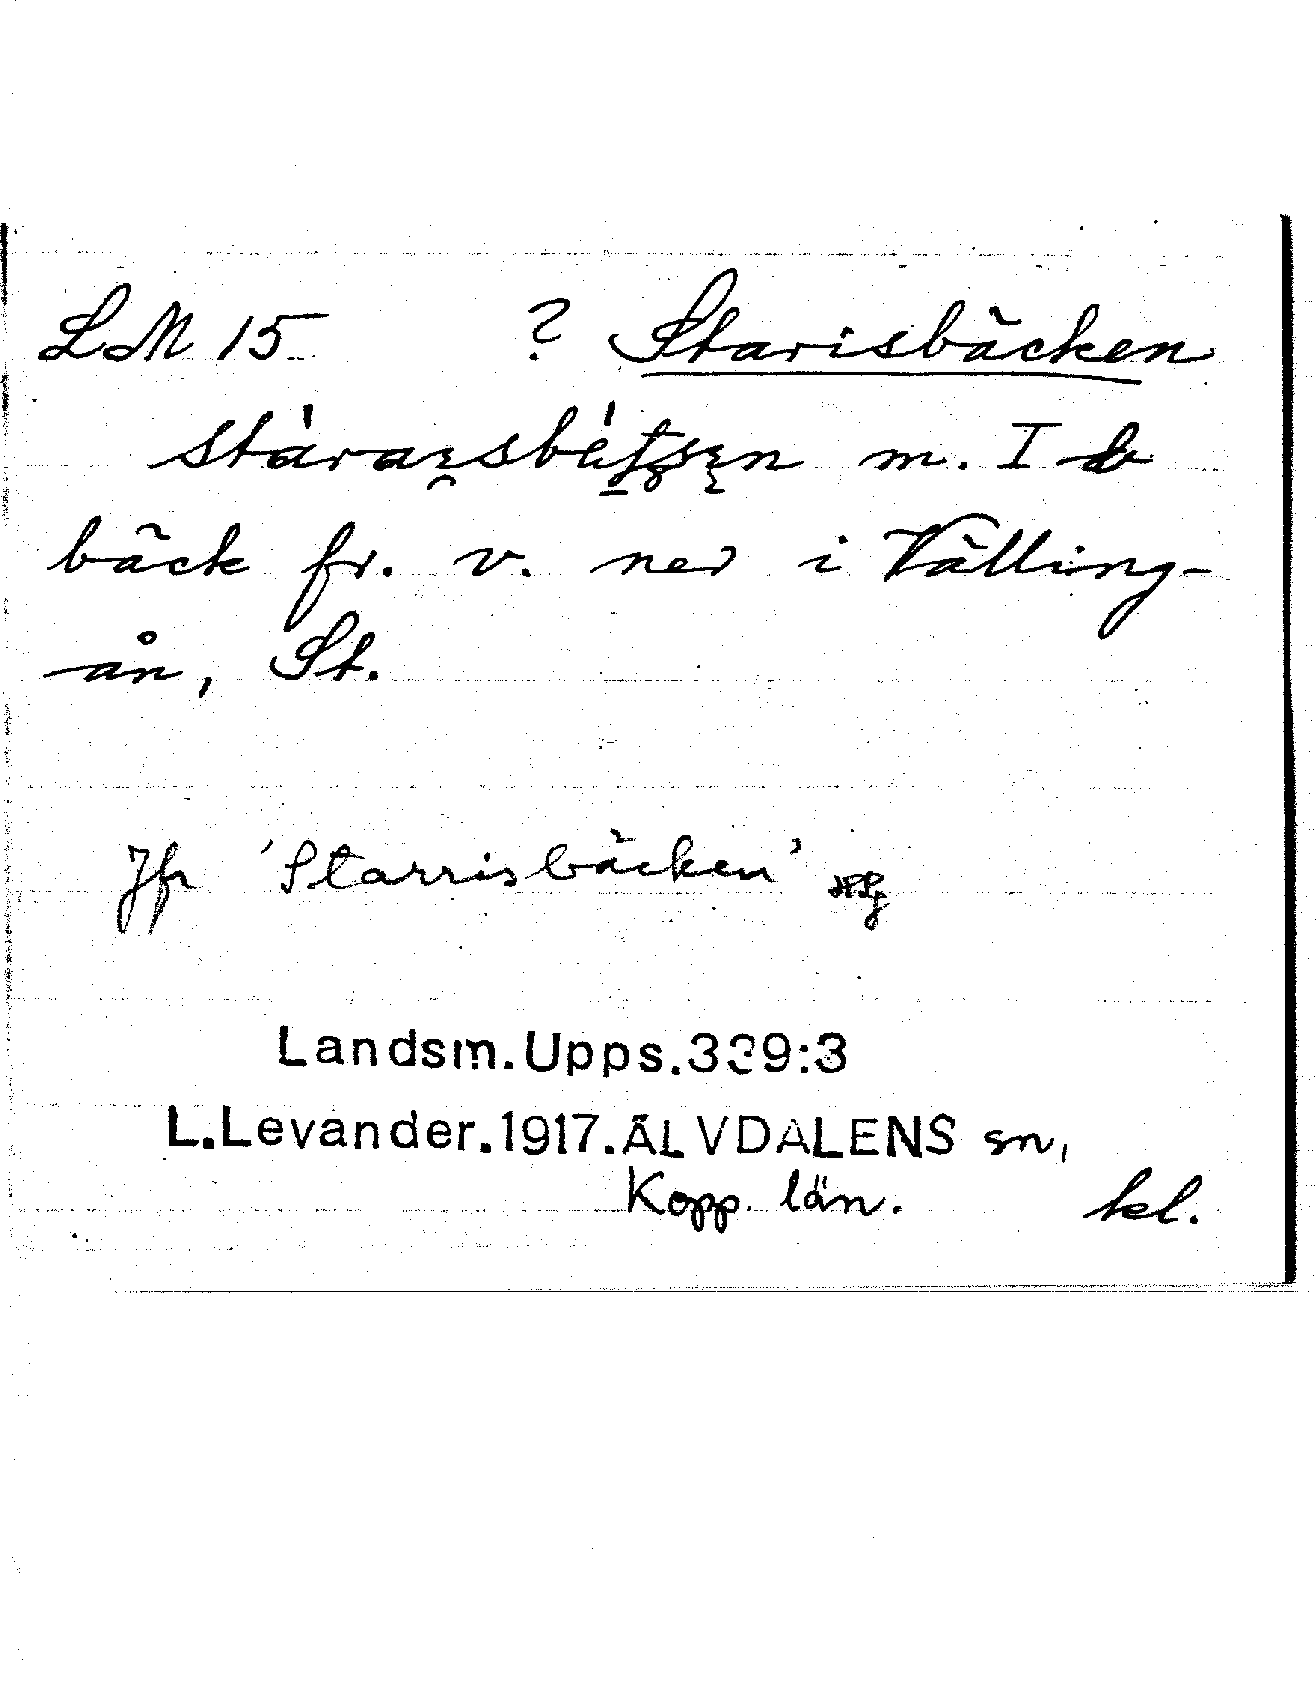 LM 15 ? Starisbäcken
m. I b
bäck fr. v. ned i Välling-
ån, St.
Jfr 'Starrisbäcken'
Landsm.Upps.339:3
L.Levander.1917.ÄLVDALENS sn,
Kopp. län. kl.